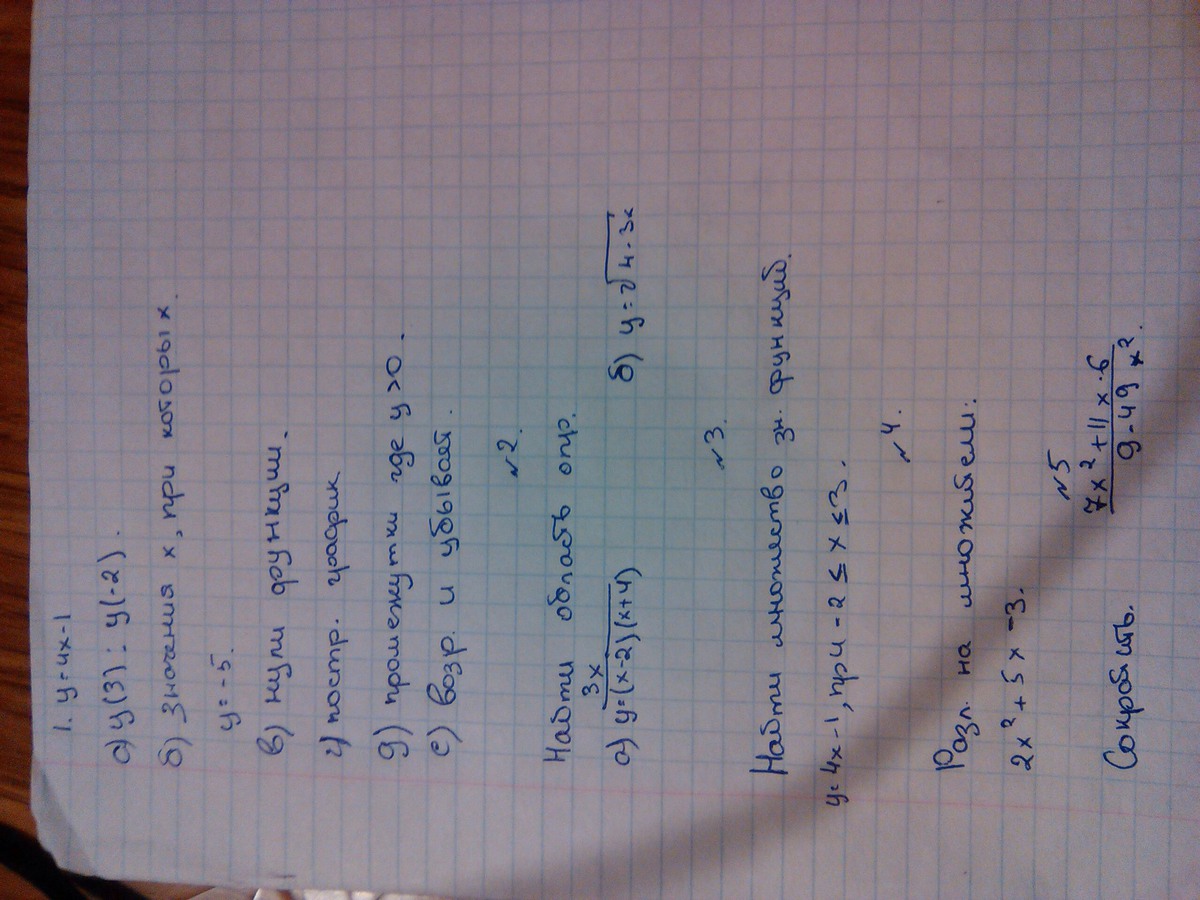 1. y=4x-1
а) y(3); y(-2).
б) значения x, при которых
y=-5.
в) нули функции.
г) постр. график
д) промежутки где y>0.
е) возр. и убывает.
№2.
Найти область опр.
а) y=3x/(x-2)(x+4) б) y=√4-3x
№3.
Найти множество зн. функций.
y=4x-1, при -2≤x≤3.
№4.
Разл. на множители:
2x²+5x-3.
№5
Сократить. 7x²+11x-6/9-49x².